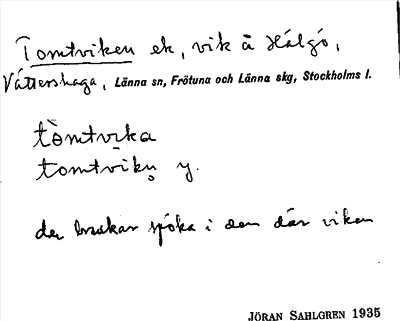 Tomtviken ek, vik å Hålgö,
Vättershaga, Länna sn, Frötuna och Länna skg, Stockholms l.
tòmtvıka
tomtvikn̥ y.
det brukar spöka i den där viken
JÖRAN SAHLGREN 1935